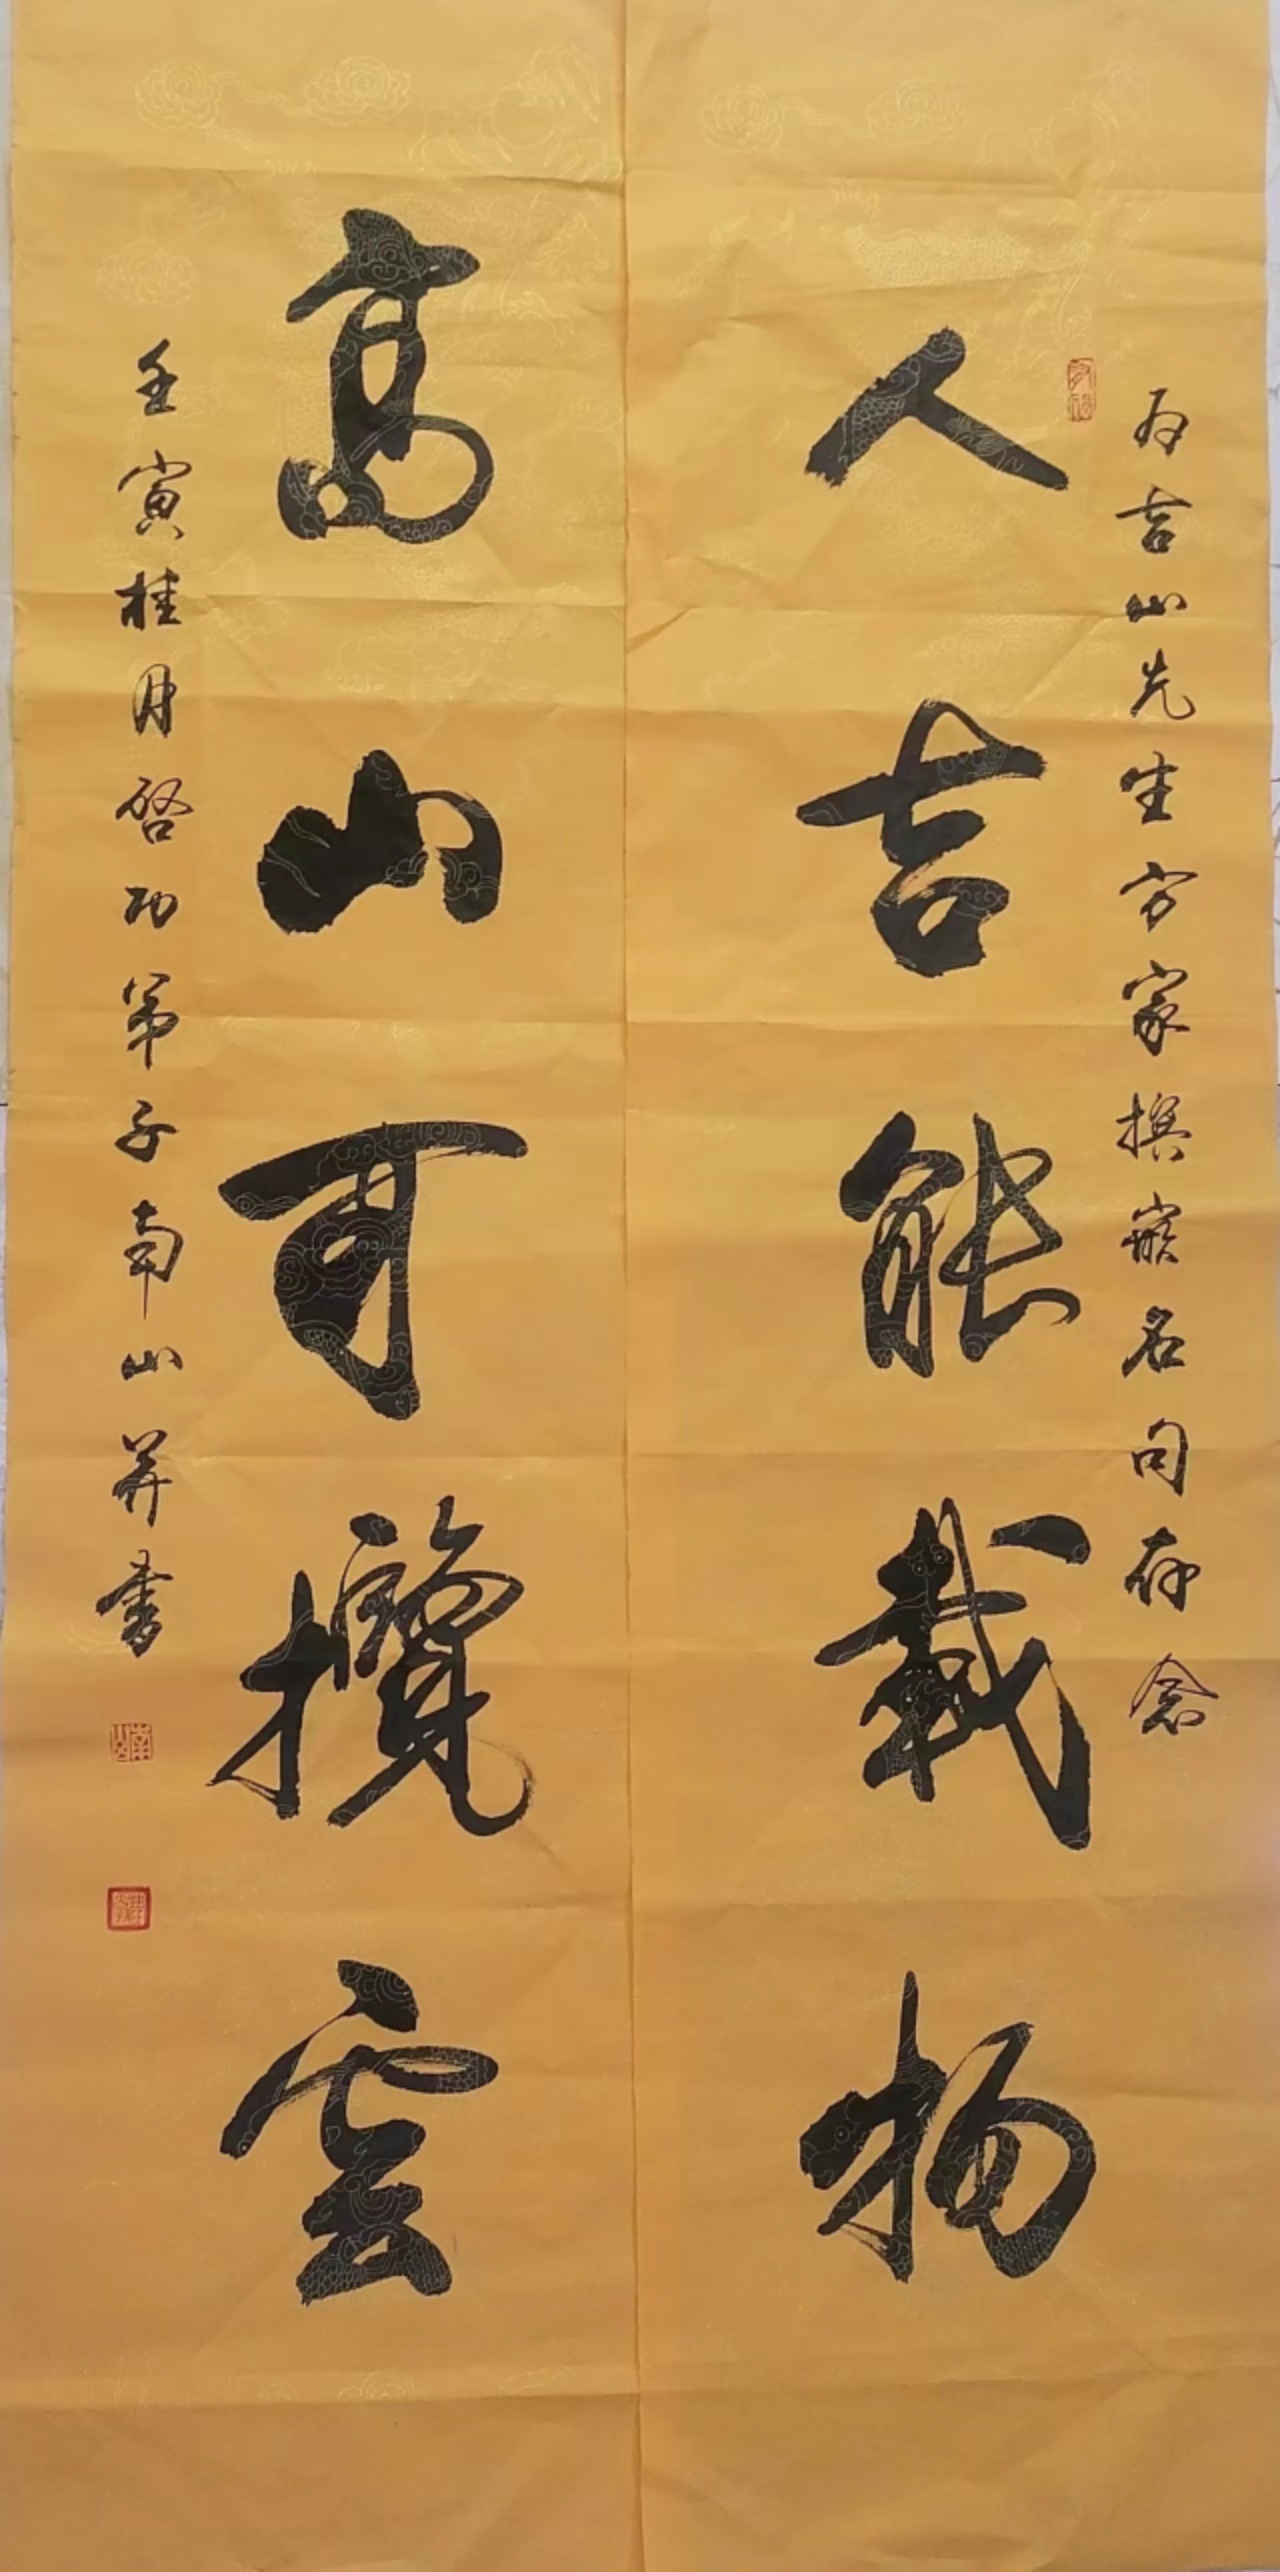 为吉山先生方家撰嵌名句存念
人吉能载物
高山可攬雲
壬寅桂月启功弟子南山并书
南山